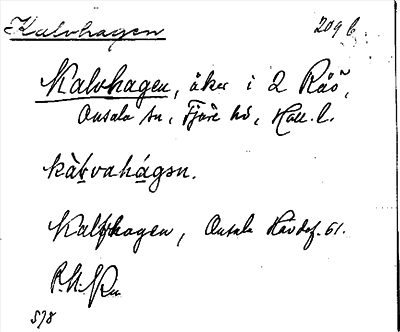 Kalvhagen 209 b
Kalvhagen, åker i 2 Råö,
Onsala sn, Fjäre hd, Hall. l.
kàḷvahágən.
Kalfhagen, Onsala
578